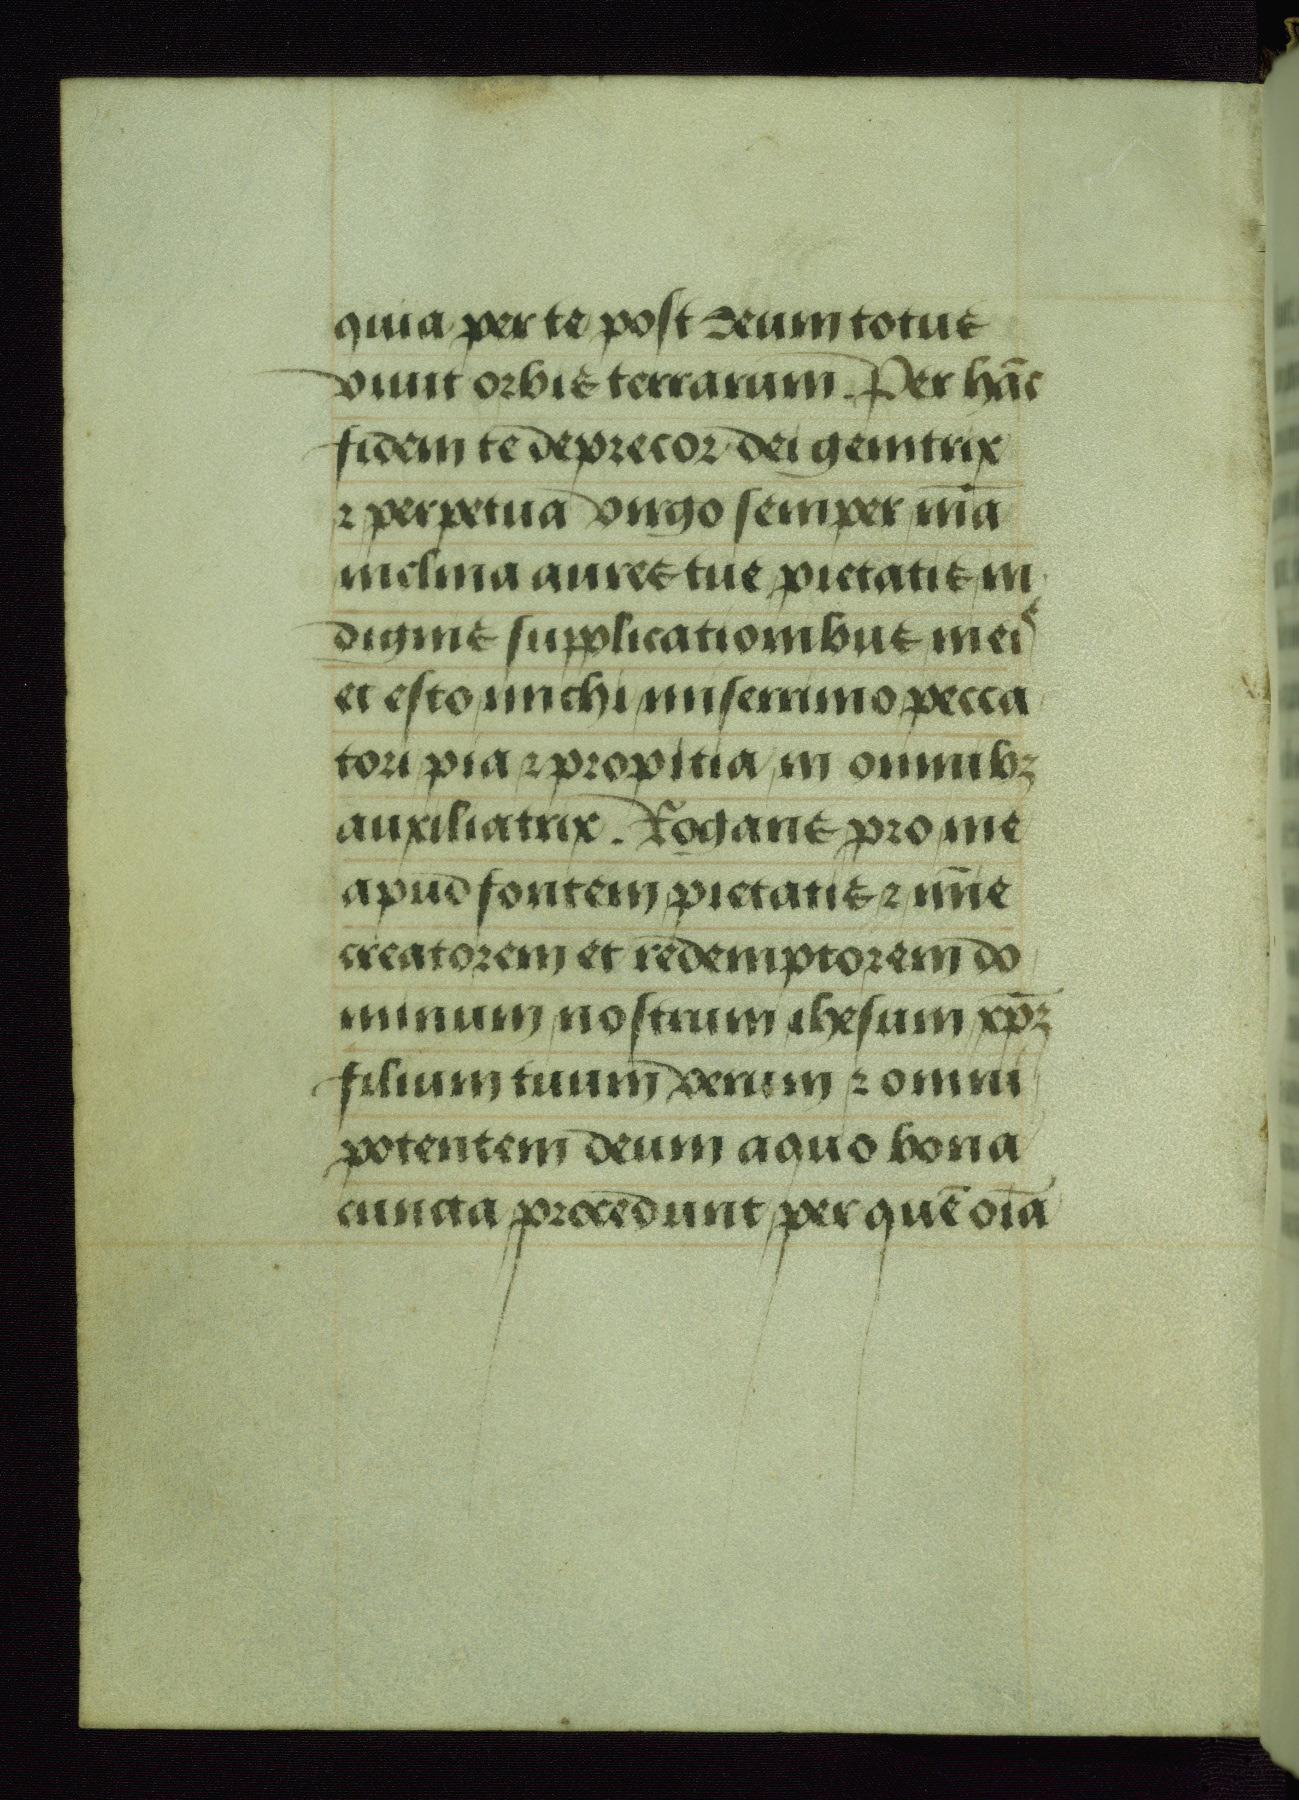 quia per te post deum totus
viuit orbis terrarum. Per hāc
fidem te deprecor dei genitrix
⁊ perpetua virgo semper m̄ia
inclina aures tue pietatis in
dignis supplicationibus meis
et esto michi miserrimo pecca
tori pia ⁊ propitia in omnibꝫ
auxiliatrix. Rogans pro me
apud fontem pietatis ⁊ mīe
creatorem et redemptorem do
minum nostrum ihesum xp̄ꝫ
filium tuum verum ⁊ omni
potentem deum a quo bona
cuncta procedunt per quē oīa